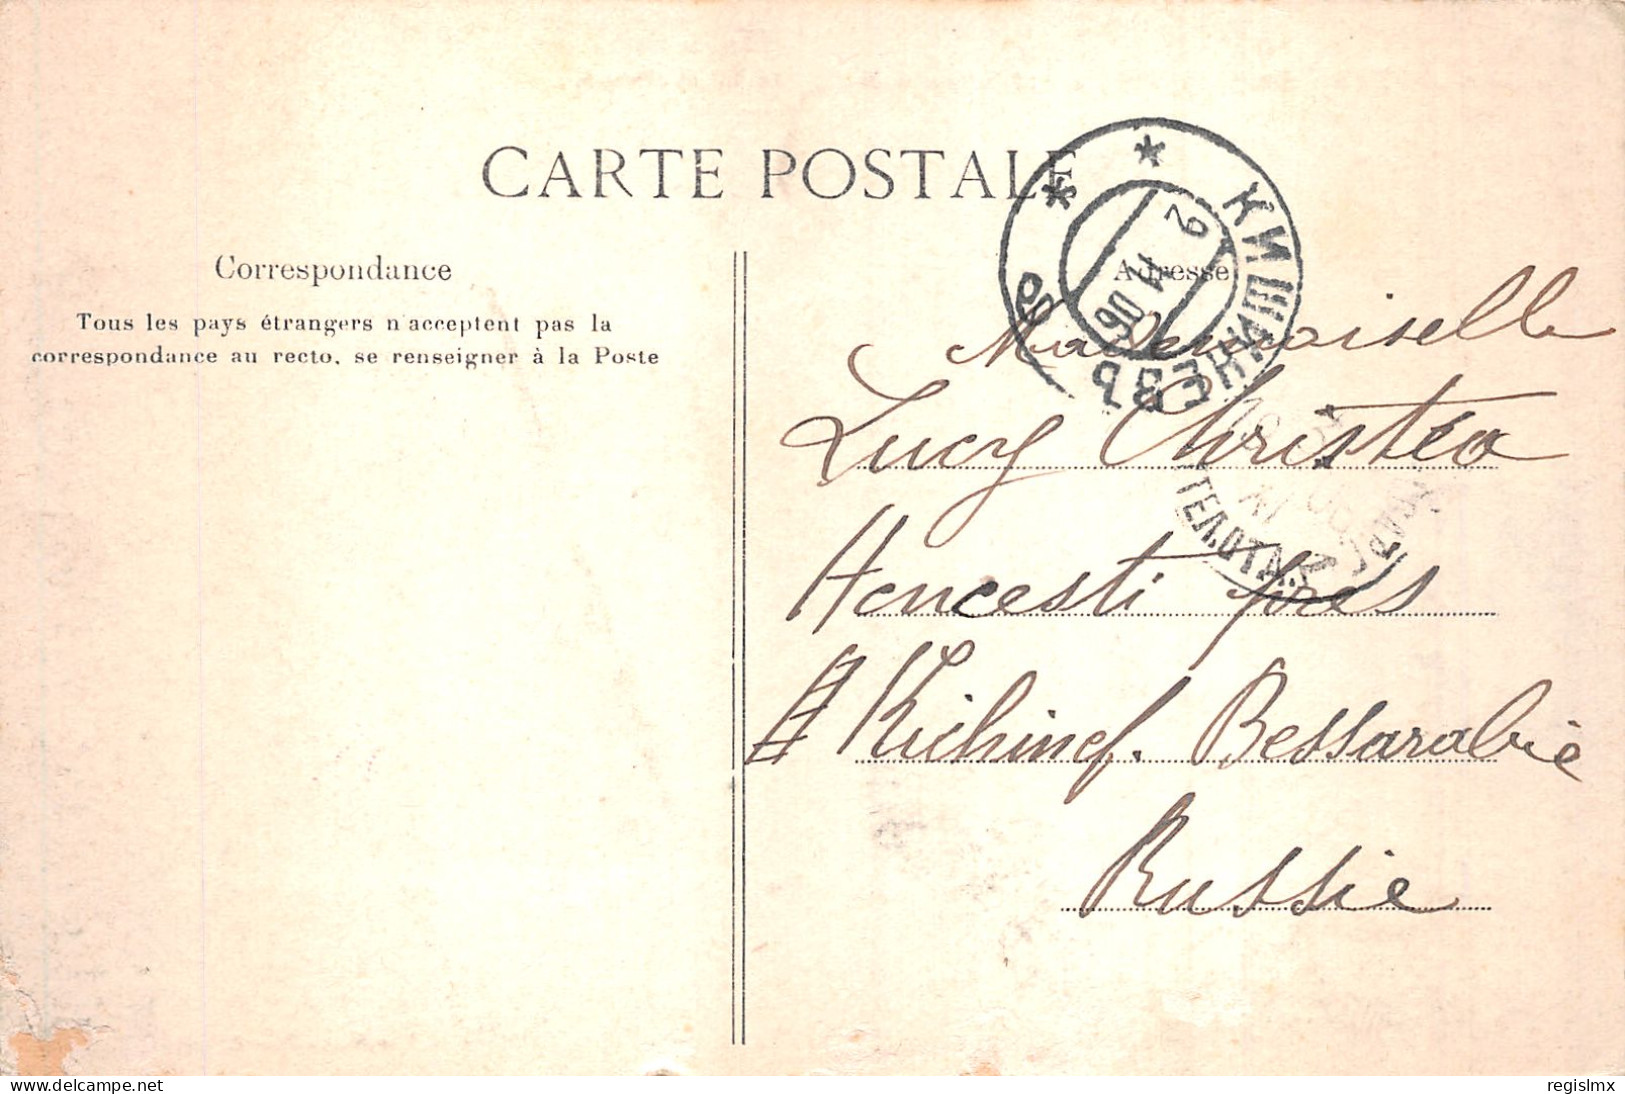 CARTE POSTALE
Correspondance
Tous les pays étrangers n'acceptent pas la
correspondance au recto, se renseigner à la Poste
Adresse
КИШИНЕВЪ
2 11 06
Mademoiselle
Lucy Christéa
Hencesti près
Kichinef. Bessarabie
Russie
ТЕЛ.ОТА.
delcampe.net
regislmx